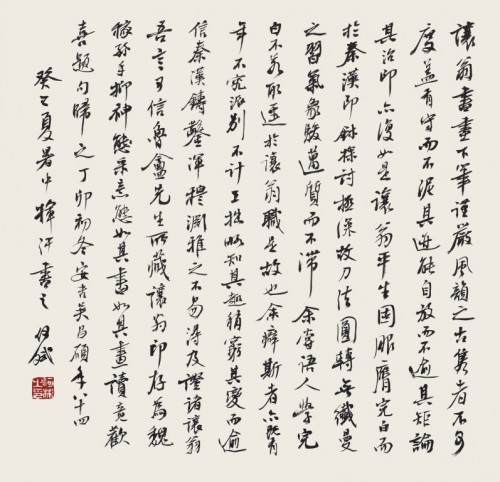 讓翁書畫下筆謹嚴風韻之古雋者不可
度蓋有守而不泥其迹能自放而不逾其矩論
其治印亦復如是讓翁平生固服膺完白而
於秦漢印鉨探討極深故刀法圜轉無纖曼
之習氣象駿邁質而不滯余嘗語人學完
白不若取逕於讓翁職是故也余癖斯者亦既有
年不究派別不計工拙略知其趣稍窮其變而逾
信秦漢鑄鑿渾穆淵雅之不易得及證諸讓翁
吾言可信魯盦先生所藏讓翁印存為魏
稼孫手抑神采意態如其書如其畫讀竟歡
喜題句歸之丁卯初冬安吉吳昌碩年八十四
癸巳夏暑中揮汗書之